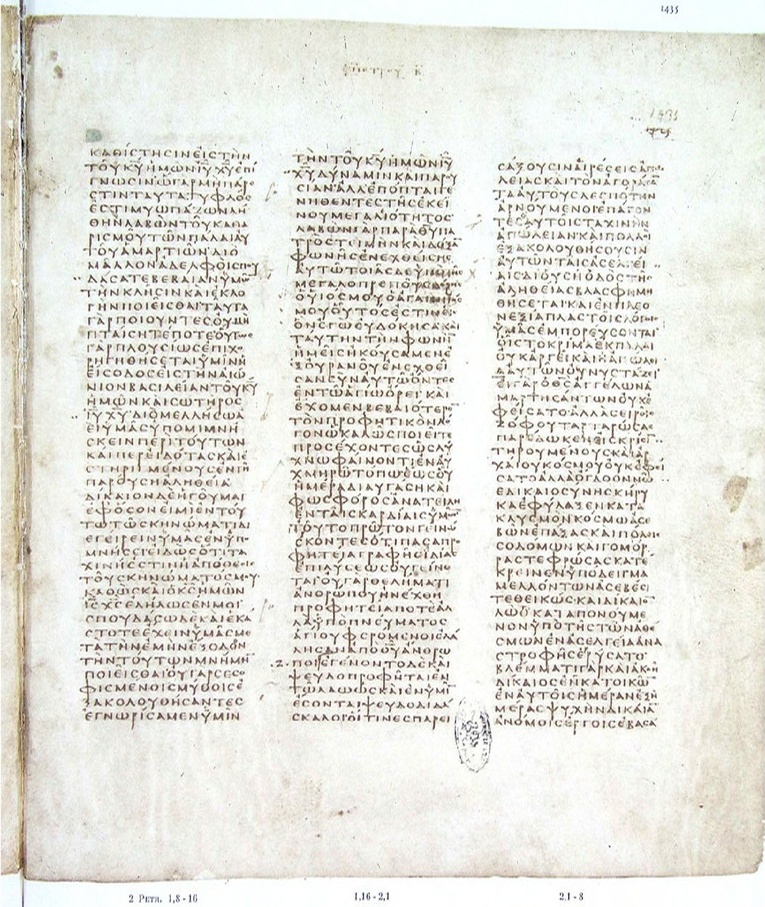 1435
ΠΕΤΡΟΥ Β
1435
ΚΑΘΙCΤΗCΙΝΕΙCΤΗΝ
ΤΟΥΚΥΗΜΩΝΙΥΧΥΕΠΙ
ΓΝΩCΙΝΩΓΑΡΜΗΠΑΡΕ
CΤΙΝΤΑΥΤΑΤΥΦΛΟC
ΕCΤΙΜΥΩΠΑΖΩΝΛΗ
ΘΗΝΛΑΒΩΝΤΟΥΚΑΘΑ
ΡΙCΜΟΥΤΩΝΠΑΛΑΙΑΥ
ΤΟΥΑΜΑΡΤΙΩΝΔΙΟ
ΜΑΛΛΟΝΑΔΕΛΦΟΙCΠΟΥ
ΔΑCΑΤΕΒΕΒΑΙΑΝΥΜΩ
ΤΗΝΚΛΗCΙΝΚΑΙΕΚΛΟ
ΓΗΝΠΟΙΕΙCΘΑΙΤΑΥΤΑ
ΓΑΡΠΟΙΟΥΝΤΕCΟΥΜΗ
ΠΤΑΙCΗΤΕΠΟΤΕΟΥΤΩ
ΓΑΡΠΛΟΥCΙΩCΕΠΙΧΟ
ΡΗΓΗΘΗCΕΤΑΙΥΜΙΝΗ
ΕΙCΟΔΟCΕΙCΤΗΝΑΙΩ
ΝΙΟΝΒΑCΙΛΕΙΑΝΤΟΥΚΥ
ΗΜΩΝΚΑΙCΩΤΗΡΟC
ΙΥΧΥΔΙΟΜΕΛΛΗCΩΑ
ΕΙΥΜΑCΥΠΟΜΙΜΝΗ
CΚΕΙΝΠΕΡΙΤΟΥΤΩΝ
ΚΑΙΠΕΡΕΙΔΟΤΑCΚΑΙΕ
CΤΗΡΙΓΜΕΝΟΥCΕΝΤΗ
ΠΑΡΟΥCΗΑΛΗΘΕΙΑ
ΔΙΚΑΙΟΝΔΕΗΓΟΥΜΑΙ
ΕΦΟCΟΝΕΙΜΙΕΝΤΟΥ
ΤΩΤΩCΚΗΝΩΜΑΤΙΔΙ
ΕΓΕΙΡΕΙΝΥΜΑCΕΝΥΠΟ
ΜΝΗCΕΙΕΙΔΩCΟΤΙΤΑ
ΧΙΝΗΕCΤΙΝΗΑΠΟΘΕCΙC
ΤΟΥCΚΗΝΩΜΑΤΟCΜΟΥ
ΚΑΘΩCΚΑΙΟΚCΗΜΩΝ
ΙCΧCΕΔΗΛΩCΕΝΜΟΙ
CΠΟΥΔΑCΩΔΕΚΑΙΕΚΑ
CΤΟΤΕΕΧΕΙΝΥΜΑCΜΕ
ΤΑΤΗΝΕΜΗΝΕΞΟΔΟΝ
ΤΗΝΤΟΥΤΩΝΜΝΗΜΗ
ΠΟΙΕΙCΘΑΙΟΥΓΑΡCΕCΟ
ΦΙCΜΕΝΟΙCΜΥΘΟΙCΕ
ΞΑΚΟΛΟΥΘΗCΑΝΤΕC
ΕΓΝΩΡΙCΑΜΕΝΥΜΙΝ
ΤΗΝΤΟΥΚΥΗΜΩΝΙΥ
ΧΥΔΥΝΑΜΙΝΚΑΙΠΑΡΟΥ
CΙΑΝΑΛΛΕΠΟΠΤΑΙΓΕ
ΝΗΘΕΝΤΕCΤΗCΕΚΕΙ
ΝΟΥΜΕΓΑΛΙΟΤΗΤΟC
ΛΑΒΩΝΓΑΡΠΑΡΑΘΥΠΑ
ΤΡΟCΤΕΙΜΗΝΚΑΙΔΟΞΑ
ΦΩΝΗCΕΝΕΧΘΕΙCΗC
ΑΥΤΩΤΟΙΑCΔΕΥΠΟΤΗC
ΜΕΓΑΛΟΠΡΕΠΟΥCΔΟΞΗC
ΟΥΙΟCΜΟΥΟΑΓΑΠΗΤΟC
ΜΟΥΟΥΤΟCΕCΤΙΝΕΙC
ΟΝΕΓΩΕΥΔΟΚΗCΑΚΑΙ
ΤΑΥΤΗΝΤΗΝΦΩΝΗ
ΗΜΕΙCΗΚΟΥCΑΜΕΝΕ
ΞΟΥΡΑΝΟΥΕΝΕΧΘΕΙ
CΑΝCΥΝΑΥΤΩΟΝΤΕC
ΕΝΤΩΑΓΙΩΟΡΕΙΚΑΙ
ΕΧΟΜΕΝΒΕΒΑΙΟΤΕΡΟ
ΤΟΝΠΡΟΦΗΤΙΚΟΝΛΟ
ΓΟΝΩΚΑΛΩCΠΟΙΕΙΤΕ
ΠΡΟCΕΧΟΝΤΕCΩCΛΥ
ΧΝΩΦΑΙΝΟΝΤΙΕΝΑΥ
ΧΜΗΡΩΤΟΠΩΕΩCΟΥ
ΗΜΕΡΑΔΙΑΥΓΑCΗΚΑΙ
ΦΩCΦΟΡΟCΑΝΑΤΕΙΛΗ
ΕΝΤΑΙCΚΑΡΔΙΑΙCΥΜΩ
ΤΟΥΤΟΠΡΩΤΟΝΓΕΙΝΩ
CΚΟΝΤΕCΟΤΙΠΑCΑΠΡΟ
ΦΗΤΕΙΑΓΡΑΦΗCΙΔΙΑC
ΕΠΙΛΥCΕΩCΟΥΓΕΙΝΕ
ΤΑΙΟΥΓΑΡΘΕΛΗΜΑΤΙ
ΑΝΘΡΩΠΟΥΗΝΕΧΘΗ
ΠΡΟΦΗΤΕΙΑΠΟΤΕΑΛ
ΛΑΥΠΟΠΝΕΥΜΑΤΟC
ΑΓΙΟΥΦΕΡΟΜΕΝΟΙΕΛΑ
ΛΗCΑΝΑΠΟΘΥΑΝΘΡΩ
ΠΟΙΕΓΕΝΟΝΤΟΔΕΚΑΙ
ΨΕΥΔΟΠΡΟΦΗΤΑΙΕΝ
ΤΩΛΑΩΩCΚΑΙΕΝΥΜΙ
ΕCΟΝΤΑΙΨΕΥΔΟΔΙΔΑ
CΚΑΛΟΙΟΙΤΙΝΕCΠΑΡΕΙ
CΑΞΟΥCΙΝΑΙΡΕCΕΙCΑΠΩ
ΛΕΙΑCΚΑΙΤΟΝΑΓΟΡΑCΑ
ΤΑΑΥΤΟΥCΔΕCΠΟΤΗΝ
ΑΡΝΟΥΜΕΝΟΙΕΠΑΓΟΝ
ΤΕCΑΥΤΟΙCΤΑΧΙΝΗΝ
ΑΠΩΛΕΙΑΝΚΑΙΠΟΛΛΟΙ
ΕΞΑΚΟΛΟΥΘΗCΟΥCΙΝ
ΑΥΤΩΝΤΑΙCΑCΕΛΓΕΙ
ΑΙCΔΙΟΥCΗΟΔΟCΤΗC
ΑΛΗΘΕΙΑCΒΛΑCΦΗΜΗ
ΘΗCΕΤΑΙΚΑΙΕΝΠΛΕΟ
ΝΕΞΙΑΠΛΑCΤΟΙCΛΟΓΟΙC
ΥΜΑCΕΜΠΟΡΕΥCΟΝΤΑΙ
ΟΙCΤΟΚΡΙΜΑΕΚΠΑΛΑΙ
ΟΥΚΑΡΓΕΙΚΑΙΗΑΠΩΛΕΙ
ΑΑΥΤΩΝΟΥΝΥCΤΑΖΕΙ
ΕΙΓΑΡΟΘCΑΓΓΕΛΩΝΑ
ΜΑΡΤΗCΑΝΤΩΝΟΥΚΕ
ΦΕΙCΑΤΟΑΛΛΑCΕΙΡΟΙC
ΖΟΦΟΥΤΑΡΤΑΡΩCΑC
ΠΑΡΕΔΩΚΕΝΕΙCΚΡΙCΙ
ΤΗΡΟΥΜΕΝΟΥCΚΑΙΑΡ
ΧΑΙΟΥΚΟCΜΟΥΟΥΚΕΦΕΙ
CΑΤΟΑΛΛΑΟΓΔΟΟΝΝΩΕ
ΔΙΚΑΙΟCΥΝΗCΚΗΡΥ
ΚΑΕΦΥΛΑΞΕΝΚΑΤΑ
ΚΛΥCΜΟΝΚΟCΜΩΑCΕ
ΒΩΝΕΠΑΞΑCΚΑΙΠΟΛΕΙC
CΟΔΟΜΩΝΚΑΙΓΟΜΟΡ
ΡΑCΤΕΦΡΩCΑCΚΑΤΕ
ΚΡΕΙΝΕΝΥΠΟΔΕΙΓΜΑ
ΜΕΛΛΟΝΤΩΝΑCΕΒΕCΙ
ΤΕΘΕΙΚΩCΚΑΙΔΙΚΑΙΟ
ΛΩΤΚΑΤΑΠΟΝΟΥΜΕ
ΝΟΝΥΠΟΤΗCΤΩΝΑΘΕ
CΜΩΝΕΝΑCΕΛΓΕΙΑΑΝΑ
CΤΡΟΦΗCΕΡΥCΑΤΟ
ΒΛΕΜΜΑΤΙΓΑΡΚΑΙΑΚΟΗ
ΔΙΚΑΙΟCΕΝΚΑΤΟΙΚΩ
ΕΝΑΥΤΟΙCΗΜΕΡΑΝΕΞΗ
ΜΕΡΑCΨΥΧΗΝΔΙΚΑΙΑ
ΑΝΟΜΟΙCΕΡΓΟΙCΕΒΑCΑ
2 Petr. 1,8 - 16
1,16 - 2,1
2,1 - 8